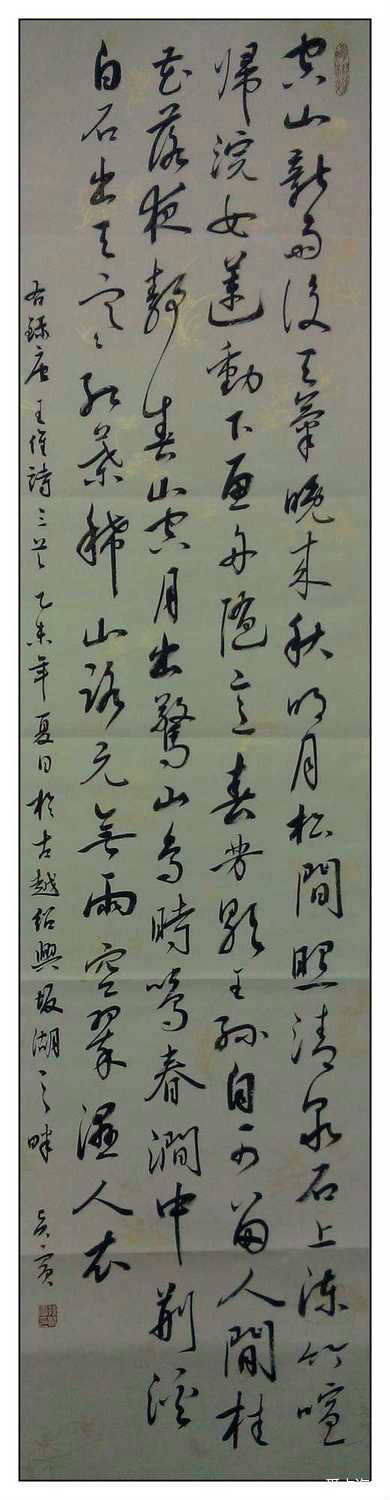 空山新雨後天氣晚来秋明月松間照清泉石上流竹喧
帰浣女蓮動下漁舟随意春芳歇王孫自可留人閒桂
花落夜静春山空月出驚山鳥時鳴春澗中荆溪
白石出天寒紅葉稀山路元無雨空翠濕人衣
右録唐王維詩三首乙未年夏日於古越紹興坂湖之畔